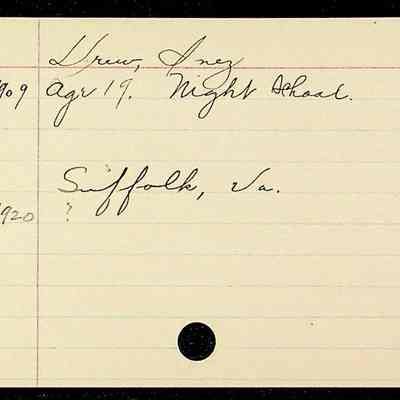 Drew, Inez
1909 Age 19. Night School.
Suffolk, Va.
1920 ?